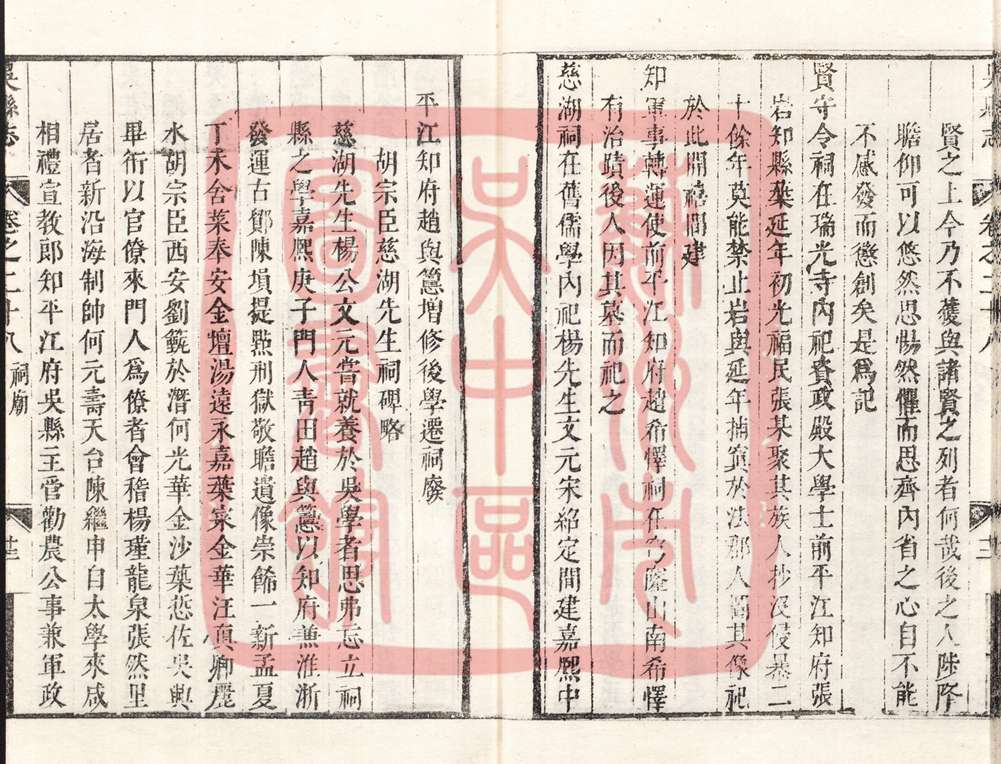 賢之上今乃不獲與諸賢之列者何哉後之人陟降
瞻仰可以悠然思惕然懼而思齊內省之心自不能
不感發而懲創矣是爲記
賢守令祠在瑞光寺內祀資政殿大學士前平江知府張
岩知縣葉延年初光福民張某聚其族人抄沒侵暴二
十餘年莫能禁止岩與延年捕寘於法那人圖其像祀
於此開禧間建
知軍事轉運使前平江知府趙希懌祠在穹窿山南希懌
有治蹟後人因其墓而祀之
慈湖祠在舊儒學內祀楊先生文元宋紹定間建嘉熙中
平江知府趙與𥲅增修後學遷祠廢
胡宗臣慈湖先生祠碑略
慈湖先生楊公文元嘗就養於吳學者思弗忘立祠
縣之學嘉熙庚子門人青田趙與𥲅以知府兼淮浙
發運古鄞陳塤提㸃刑獄敬瞻遺像崇餙一新孟夏
丁未舍菜奉安金壇湯遠永嘉葉寀金華汪頂卿麗
水胡宗臣西安劉籈於潛何光華金沙葉㤠佐吳興
畢衍以官僚來門人爲僚者會稽楊瑾龍泉張然里
居者新沿海制帥何元壽天台陳繼申自太學來咸
相禮宣教郎知平江府吳縣主管勸農公事兼軍政
吳縣志
卷之二十八
祠廟
廿三
蘇州市
吳中區
圖書館